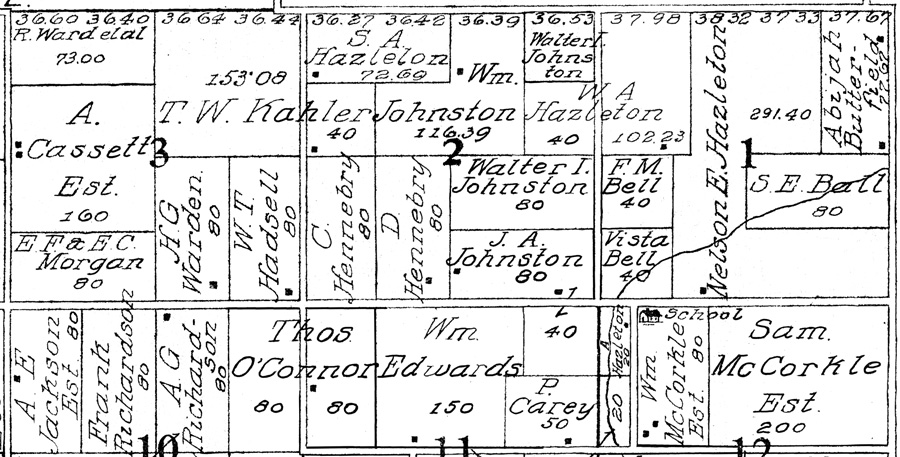 36.60 36.40 36.64 36.44 36.37 36.42 36.39 36.53 37.98 38 32 37 33 37.67
R. Wardelal
73.00
153.08
S. A.
Hazleton
72.69
Wm.
Walter I.
Johns
ton
W A
Hazleton
40
102.23
Nelson E. Hazleton
291.40
Abijah
Butter-
field
A.
Cassett
Est.
160
3
T. W. Kahler
40
Johnston
116.39
2
1
E. F. & E. C.
Morgan
80
H G
Warden
80
W. T.
Hadsell
80
C.
Hennebry
80
D
Hennebry
80
Walter I.
Johnston
80
J. A.
Johnston
80
1
F. M.
Bell
40
Vista
Bell
40
S. E. Ball
80
A E
Jackson
Est 80
Frank
Richardson
80
A G
Richard-
son
80
Thos.
O'Connor
80
80
Wm
Edwards
150
40
P.
Carey
50
A Hazleton
20
20
School
Wm
McCorkle
Est. 80
Sam.
McCorkle
Est.
200
10
11
12